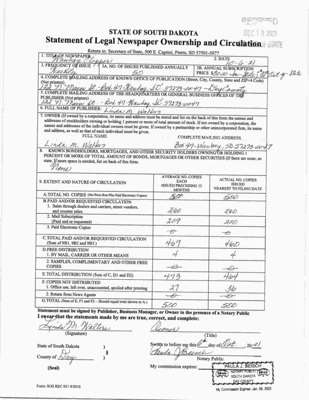 RECEIVED
DEC 10 2021
STATE OF SOUTH DAKOTA
Statement of Legal Newspaper Ownership and Circulation
Return to: Secretary of State, 500 E. Capitol, Pierre, SD 57501-5077
1. TITLE OF NEWSPAPER
2. DATE
Waubay Clipper
10-6-21
3. FREQUENCY OF ISSUE
3A. NO. OF ISSUES PUBLISHED ANNUALLY
3B. ANNUAL SUBSCRIPTION PRICE
Weekly
50
4. COMPLETE MAILING ADDRESS OF KNOWN OFFICE OF PUBLICATION (Street, City, County, State and ZIP+4 Code) (Not printers)
5. COMPLETE MAILING ADDRESS OF THE HEADQUARTERS OR GENERAL BUSINESS OFFICES OF THE PUBLISHER (Not printers)
6. FULL NAME OF PUBLISHER:
Linda M. Walters
7. OWNER (If owned by a corporation, its name and address must be stated and list on the back of this form the names and addresses of stockholders owning or holding 1 percent or more of total amount of stock. If not owned by a corporation, the names and addresses of the individual owners must be given. If owned by a partnership or other unincorporated firm, its name and address, as well as that of each individual must be given.
FULL NAME
COMPLETE MAILING ADDRESS
Linda M. Walters
Box 47-Waubay, SD 57273-0047
8. KNOWN BONDHOLDERS, MORTGAGEES, AND OTHER SECURITY HOLDERS OWNING OR HOLDING 1 PERCENT OR MORE OF TOTAL AMOUNT OF BONDS, MORTGAGES OR OTHER SECURITIES (If there are none, so state. If more space is needed, list on back of this form.
None
9. EXTENT AND NATURE OF CIRCULATION
AVERAGE NO. COPIES EACH ISSUED PRECEDING 12 MONTHS
ACTUAL NO. COPIES ISSUED NEAREST TO FILING DATE
A.TOTAL NO. COPIES
500
500
B.PAID AND/OR REQUESTED CIRCULATION
1. Sales through dealers and carriers, street vendors, and counter sales
2. Mail Subscription
(Paid and or requested)
3. Paid Electronic Copies
C.TOTAL PAID AND/OR REQUESTED CIRCULATION
(Sum of 9B1, 9B2 and 9B3.)
469
460
D.FREE DISTRIBUTION
1. BY MAIL, CARRIER OR OTHER MEANS
4
4
2. SAMPLES, COMPLIMENTARY AND OTHER FREE COPIES
E. TOTAL DISTRIBUTION (Sum of C, D1 and D2)
473
464
F. COPIES NOT DISTRIBUTED
1. Office use, left over, unaccounted, spoiled after printing
27
36
2. Return from News Agents
G.TOTAL (Sum of E, F1 and F2 - Should equal total shown in A.)
500
500
Statement must be signed by Publisher, Business Manager, or Owner in the presence of a Notary Public
I swear that the statements made by me are true, correct, and complete:
Linda M. Walters
Owner
(Signature)
(Title)
State of South Dakota )
County of Day )
(Seal)
Paula J Beisch
Notary Public
My commission expires:
PAULA J. BEISCH
NOTARY PUBLIC
SOUTH DAKOTA
My Commission Expires Jan. 26, 2022
Form: SOS REC 051 9/2016